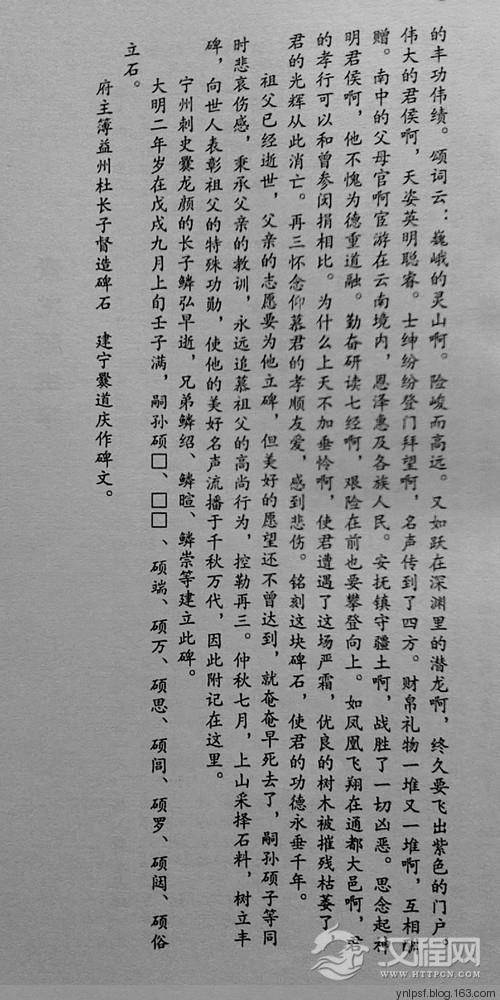 的丰功伟绩。颂词云：巍峨的灵山啊。险峻而高远。又如跃在深渊里的潜龙啊，终久要飞出紫色的门户。
伟大的君侯啊，天姿英明聪睿。士绅纷纷登门拜望啊，名声传到了四方。财帛礼物一堆又一堆啊，互相
赠。南中的父母官啊宦游在云南境内，恩泽惠及各族人民。安抚镇守疆土啊，战胜了一切凶恶。思念起神
明君侯啊，他不愧为德重道融。勤奋研读七经啊，艰险在前也要攀登向上。如凤凰飞翔在通都大邑啊，君
的孝行可以和曾参闵损相比。为什么上天不加垂怜啊，使君遭遇了这场严霜，优良的树木被摧残枯萎了，
君的光辉从此消亡。再三怀念仰慕君的孝顺友爱，感到悲伤。铭刻这块碑石，使君的功德永垂千年。
祖父已经逝世，父亲的志愿要为他立碑，但美好的愿望还不曾达到，就奄奄早死去了，嗣孙硕子等同
时悲哀伤感，秉承父亲的教训，永远追慕祖父的高尚行为，控勒再三。仲秋七月，上山采择石料，树立丰
碑，向世人表彰祖父的特殊功勋，使他的美好名声流播于千秋万代，因此附记在这里。
宁州刺史爨龙颜的长子鳞弘早逝，兄弟鳞绍、鳞暄、鳞崇等建立此碑。
大明二年岁在戊戌九月上旬壬子满，嗣孙硕□、□□、硕端、硕万、硕思、硕闾、硕罗、硕闼、硕俗
立石。
府主簿益州杜长子督造碑石　建宁爨道庆作碑文。
汉程网
WWW.HTTPCN.COM
ynlpsf.blog.163.com